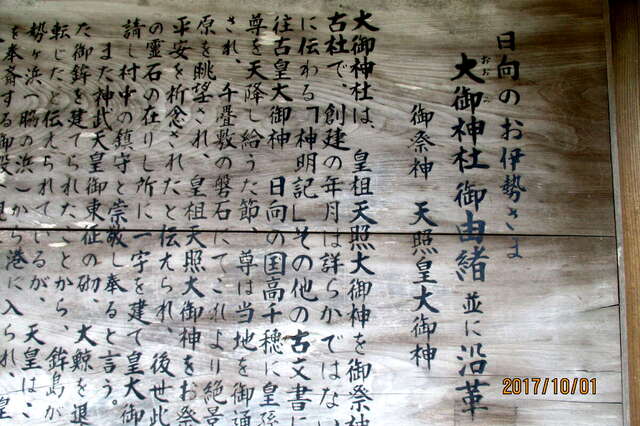 日向のお伊勢さま
大御神社御由緒 並に 沿革
おおみ
御祭神 天照皇大御神
大御神社は、皇祖天照大御神を御祭神
古社で、創建の年月は詳らかではない
に伝わる「神明記」その他の古文書に
往古皇大御神 日向の国高千穂に皇孫
尊を天降し給うた節、尊は当地を御通
され、千畳敷の磐石にてこれより絶景
原を眺望され、皇祖天照大御神をお祭
平安を祈念されたと伝えられ、後世此
の霊石の在りし所に一宇を建て皇大御
請し村中の鎮守と崇敬し奉ると言う。
また神武天皇御東征の砌、大鯨を退
た御鉾を建てられたことから、鉾島が
転じたと伝えられているが、天皇は
勢ヶ浜(脇の浜)から港に入られ
を奉斎する御殿
2017/10/01